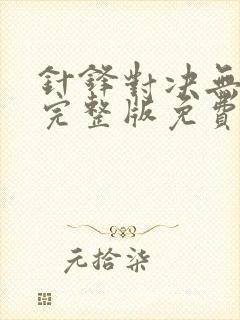 針鋒對决無
完整版免費
元拾柒